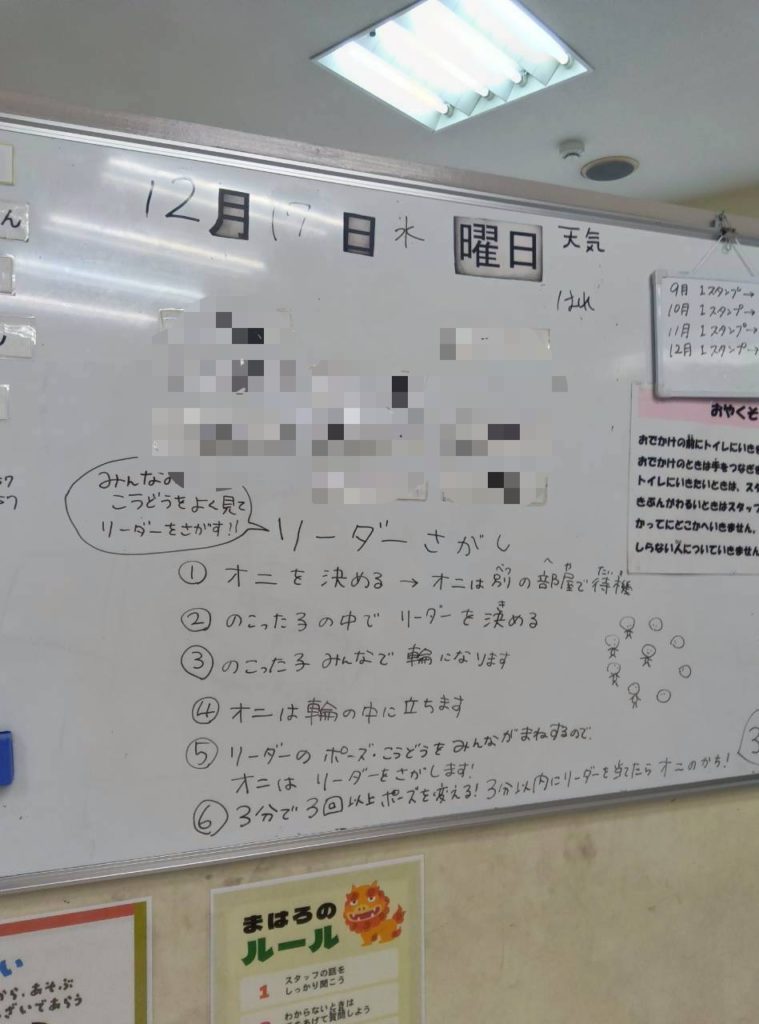 12月17日 水 曜日 天気
はれ
9月 1スタンプ→
10月 1スタンプ→
11月 1スタンプ→
12月 1スタンプ→
おやくそ
おでかけの前にトイレにいきま
おでかけのときは手をつなぎま
トイレにいきたいときは、スタ
きぶんがわるいときはスタッフ
かってにどこかへいきません。
しらない人についていきません
みんなの
こうどうをよく見て
リーダーをさがす!!
リーダーさがし
① オニを決める → オニは別の部屋で待機
② のこった子の中で リーダーを決める
③ のこった子 みんなで 輪になります
④ オニは輪の中に立ちます
⑤ リーダーの ポーズ・こうどうを みんながまねするので、
オニは リーダーをさがします!
⑥ 3分で3回以上ポーズを変える! 3分以内にリーダーを当てたら オニのかち!
まはろの
ルール
1 スタッフの話を
しっかり聞こう
わからないときは
あげて質問しよう
い
から、あそぶ
ざいであらう